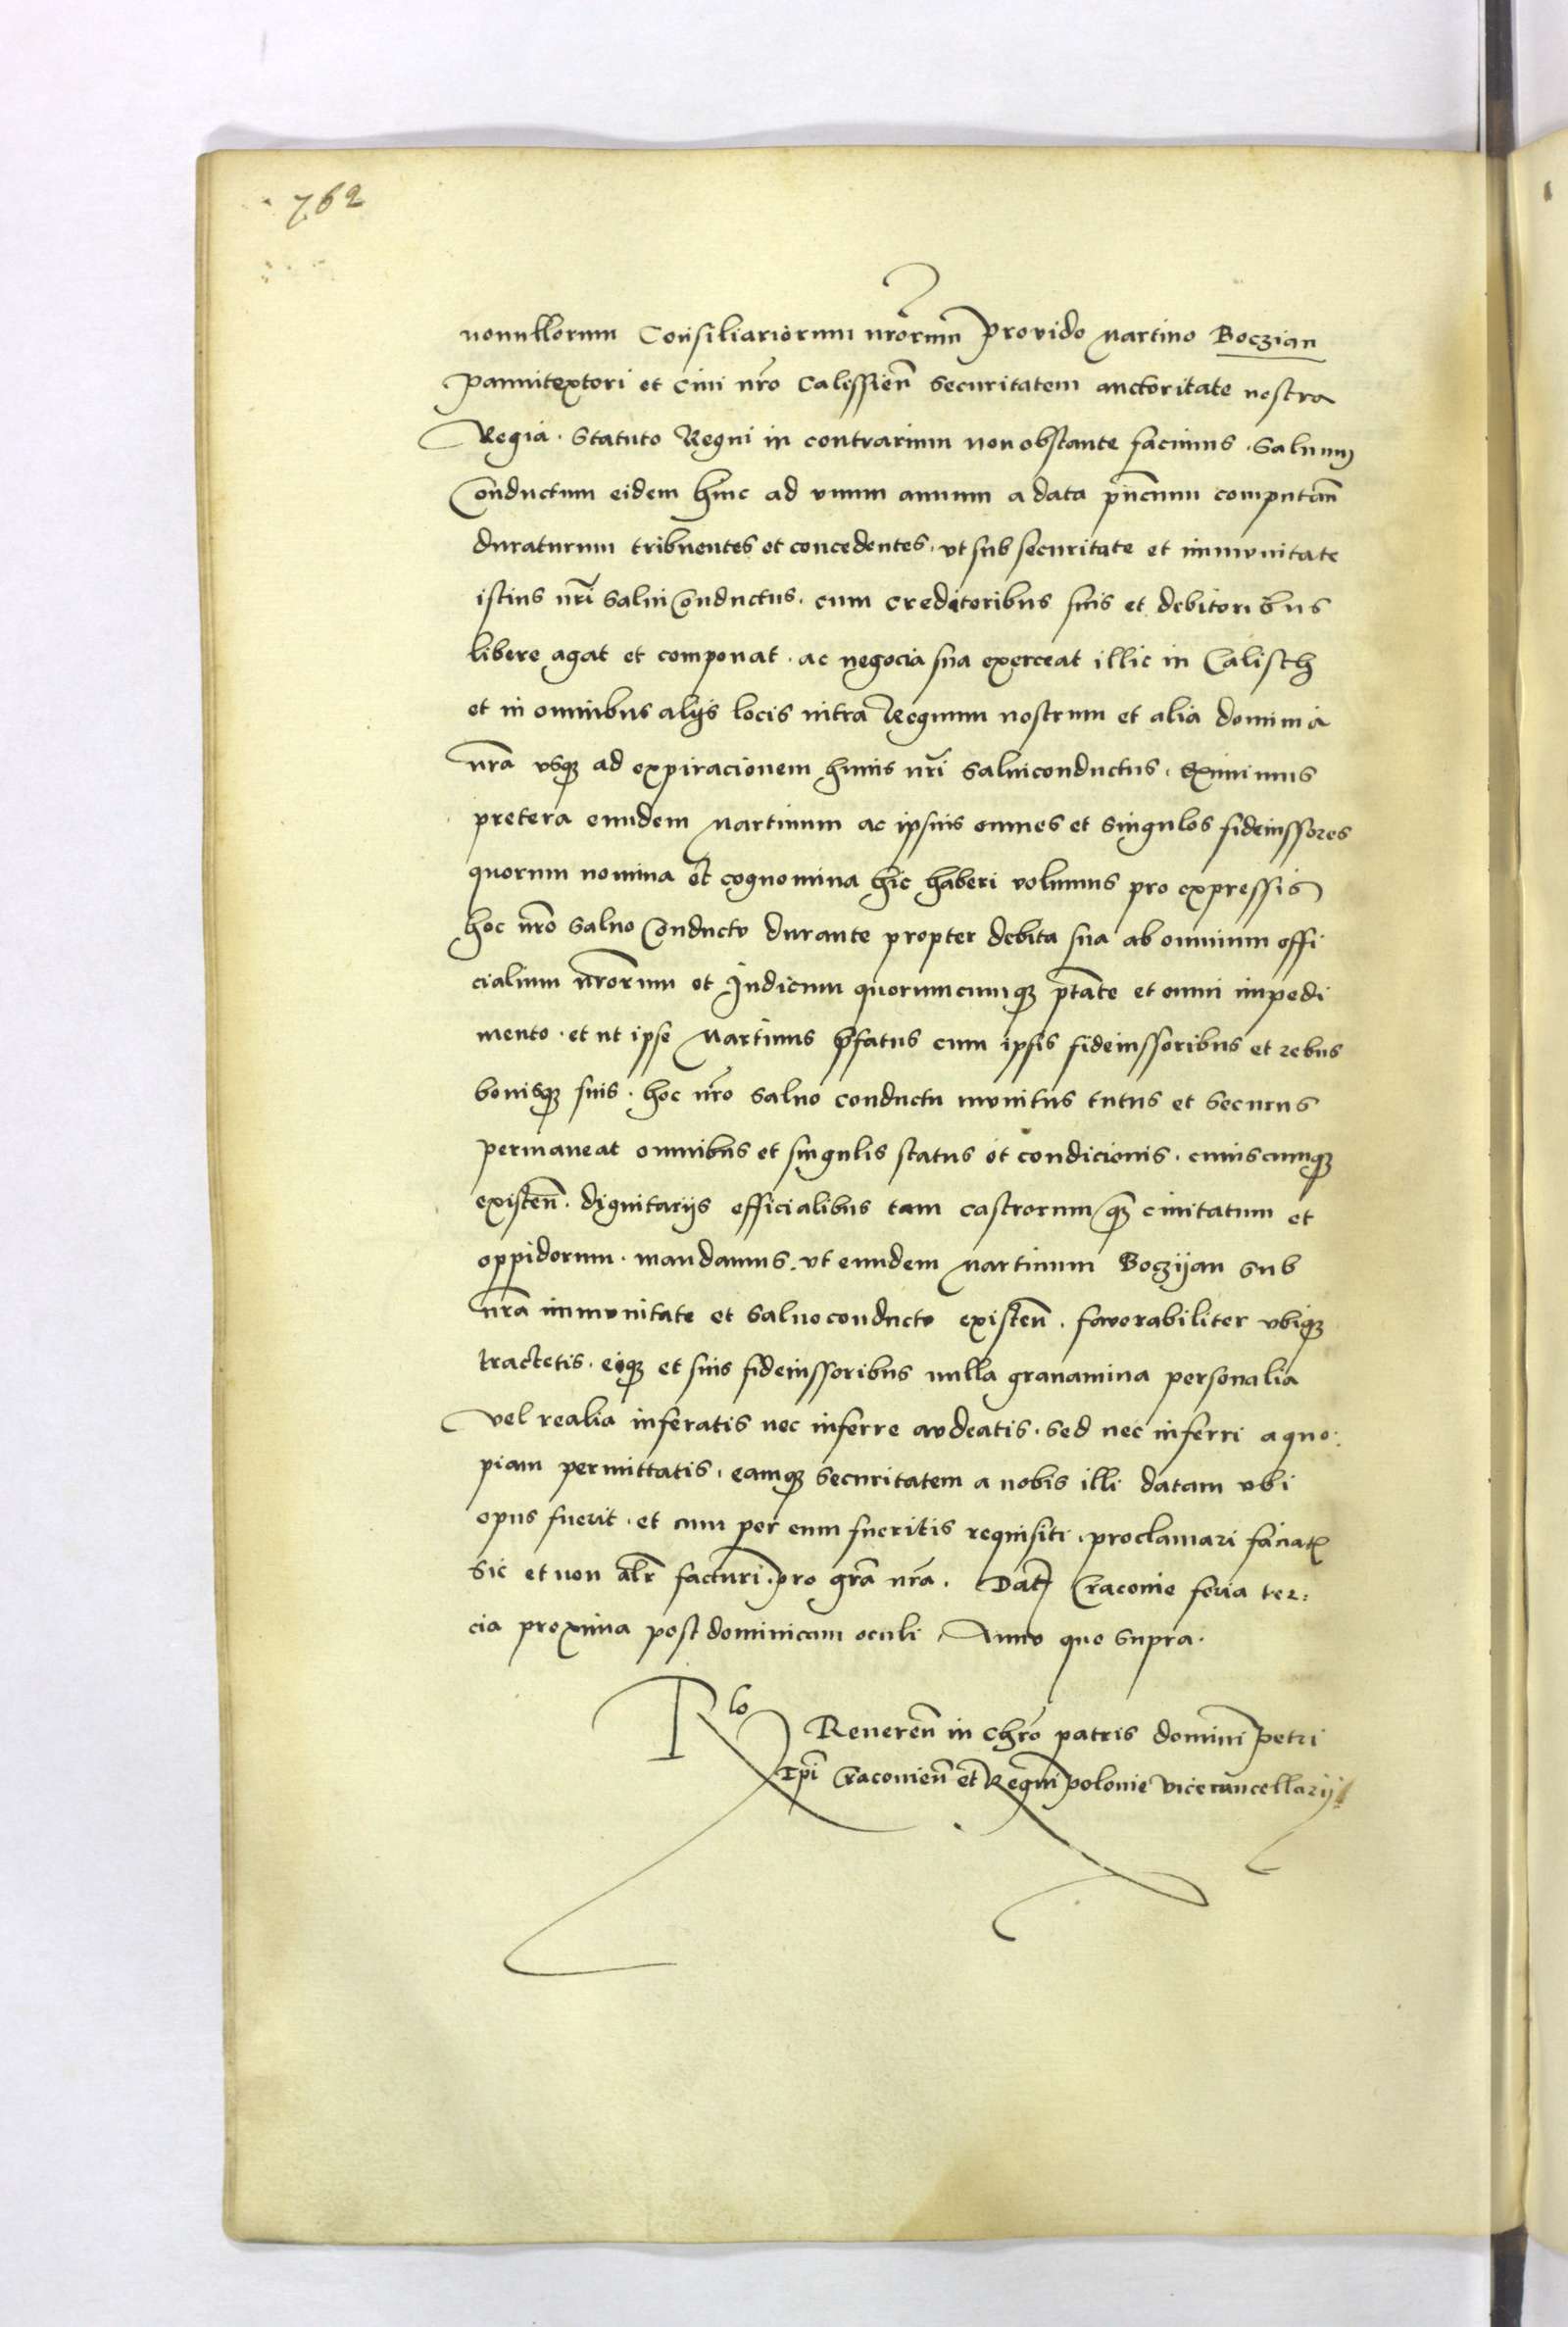 762
nonnullorum Consiliariorum nrõrum Provido Martino Boczian
Pannitextori et Ciui nrõ Calissieñ Securitatem auctoritate nostra
Regia. Statuto Regni in contrarium non obstante facimus. Saluum
Conductum eidem hinc ad vnum annum a data pñcium computañ
duraturum tribuentes et concedentes, vt sub securitate et immunitate
istius nrĩ Salui Conductus. cum creditoribus suis et debitoribus
libere agat et componat. ac negocia sua exerceat illic in Calisch
et in omnibus alijs locis intra Regnum nostrum et alia dominia
nrã vsq3 ad expiracionem huius nrĩ Saluiconductus. Eximimus
pretera eundem Martinum ac ipsius omnes et singulos fideiussores
quorum nomina et cognomina hic haberi volumus pro expressis
hoc nrõ Saluo Conductu durante propter debita sua ab omnium offi
cialium nrõrum et Judicum quorumcumq3 ptãte et omni impedi
mento. et ut ipse Martinus pfatus cum ipsis fideiussoribus et rebus
bonisq3 suis. hoc nrõ Saluo conductu munitus tutus et securus
permaneat omnibus et singulis status et condicionis. cuiuscumq3
existeñ. dignitarijs officialibus tam castrorum q3 ciuitatum et
oppidorum. mandamus. vt eundem Martinum Boczijan sub
nrã immunitate et Saluoconductu existeñ. favorabiliter vbiq3
tractetis. eiq3 et suis fideiussoribus nulla grauamina personalia
vel realia inferatis nec inferre audeatis. sed nec inferri a quo:
piam permittatis. eamq3 securitatem a nobis illi datam vbi
opus fuerit. et cum per eum fueritis requisiti. proclamari faciatꝭ
Sic et non alr̃ facturi. pro grã nrã. Dat̃ Cracouie feria ter:
cia proxima post dominicam oculi. Anno quo supra.
Rlo Reuereñ in Chrõ patris domini Petri
Epĩ Cracouieñ et Regni Polonie Vicecancellarij